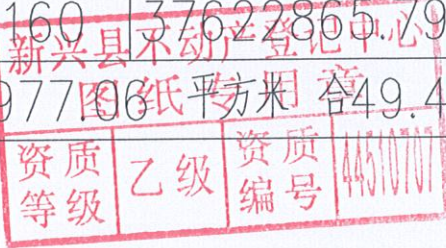 160 37622865.79
新兴县不动产登记中心
图纸专用章
977.06 平方米 合49.4
资质等级 乙级 资质编号 44510707